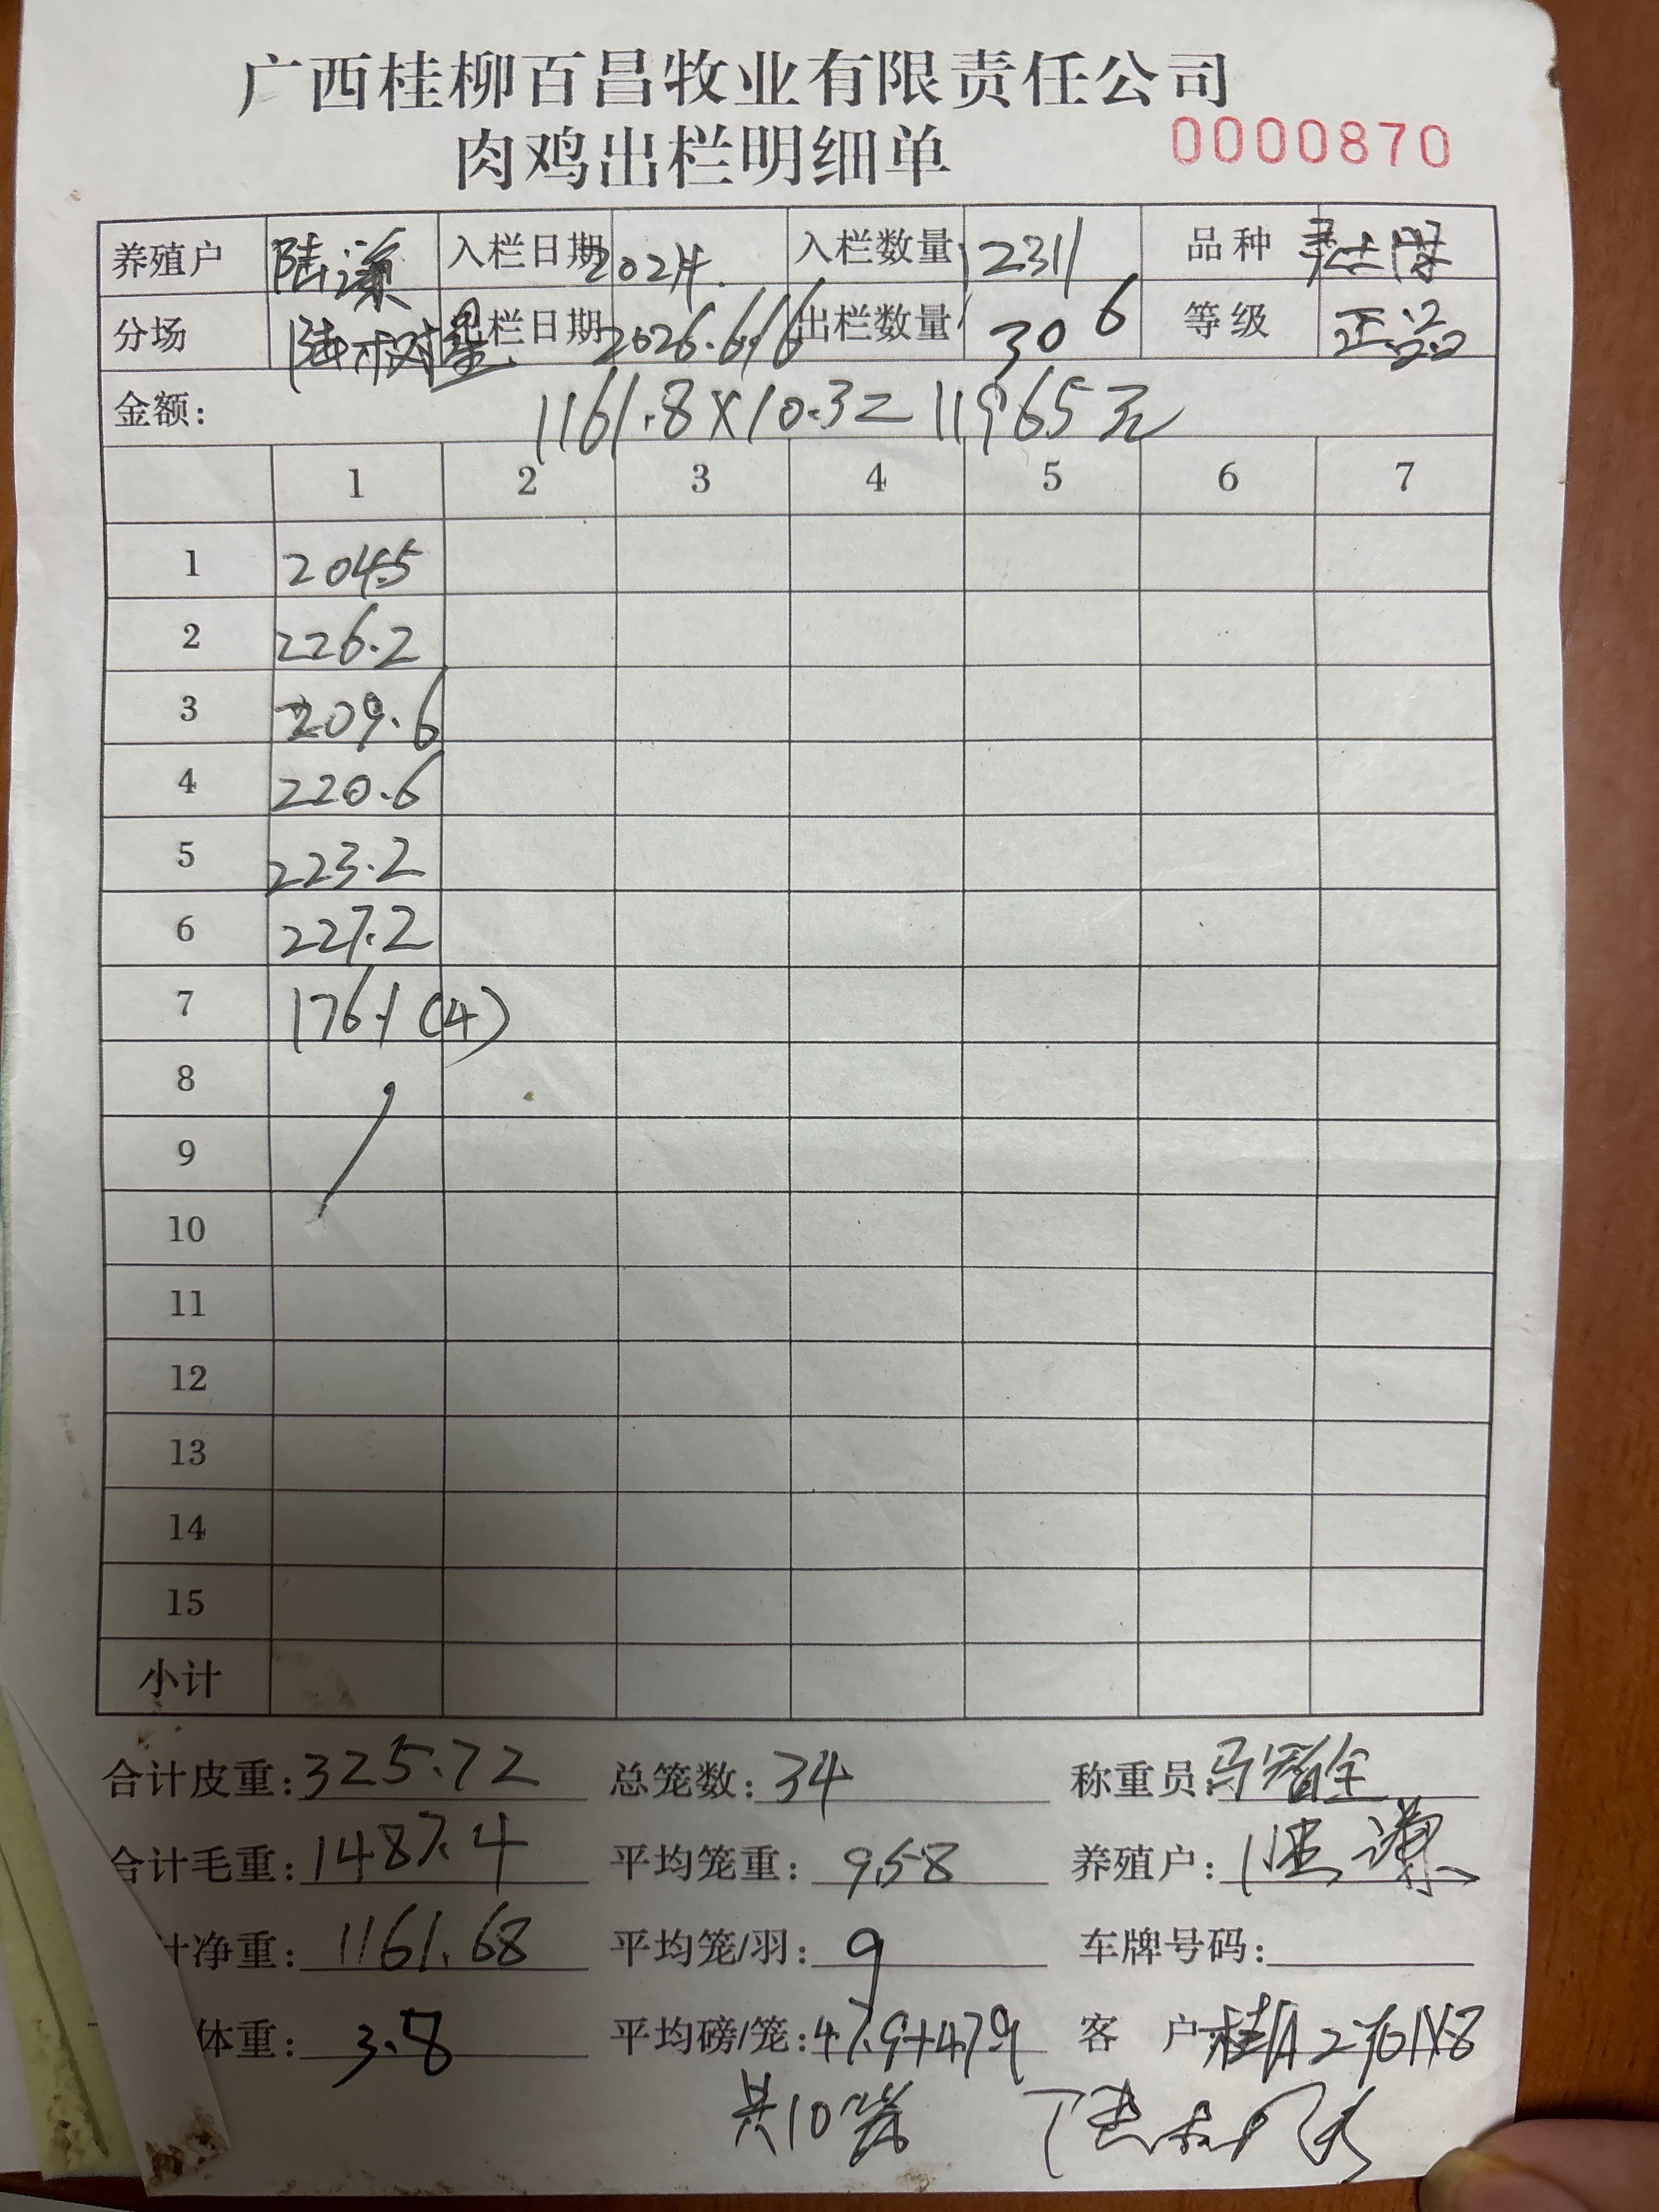 广西桂柳百昌牧业有限责任公司
肉鸡出栏明细单 0000870
养殖户 陆谦 入栏日期 入栏数量 12311 品种
分场 出栏日期 2026.6.16 出栏数量 306 等级 正品
金额: 1161.8×10.3=11965元
1 2 3 4 5 6 7
1 204.5
2 226.2
3 209.6
4 220.6
5 223.2
6 227.2
7 176.1 (4)
8
9
10
11
12
13
14
15
小计
合计皮重: 325.72 总笼数: 34 称重员:
合计毛重: 1487.4 平均笼重: 9.58 养殖户: 陆谦
计净重: 1161.68 平均笼/羽: 9 车牌号码:
体重: 3.8 平均磅/笼: 47.9+47.9 客 户
共10